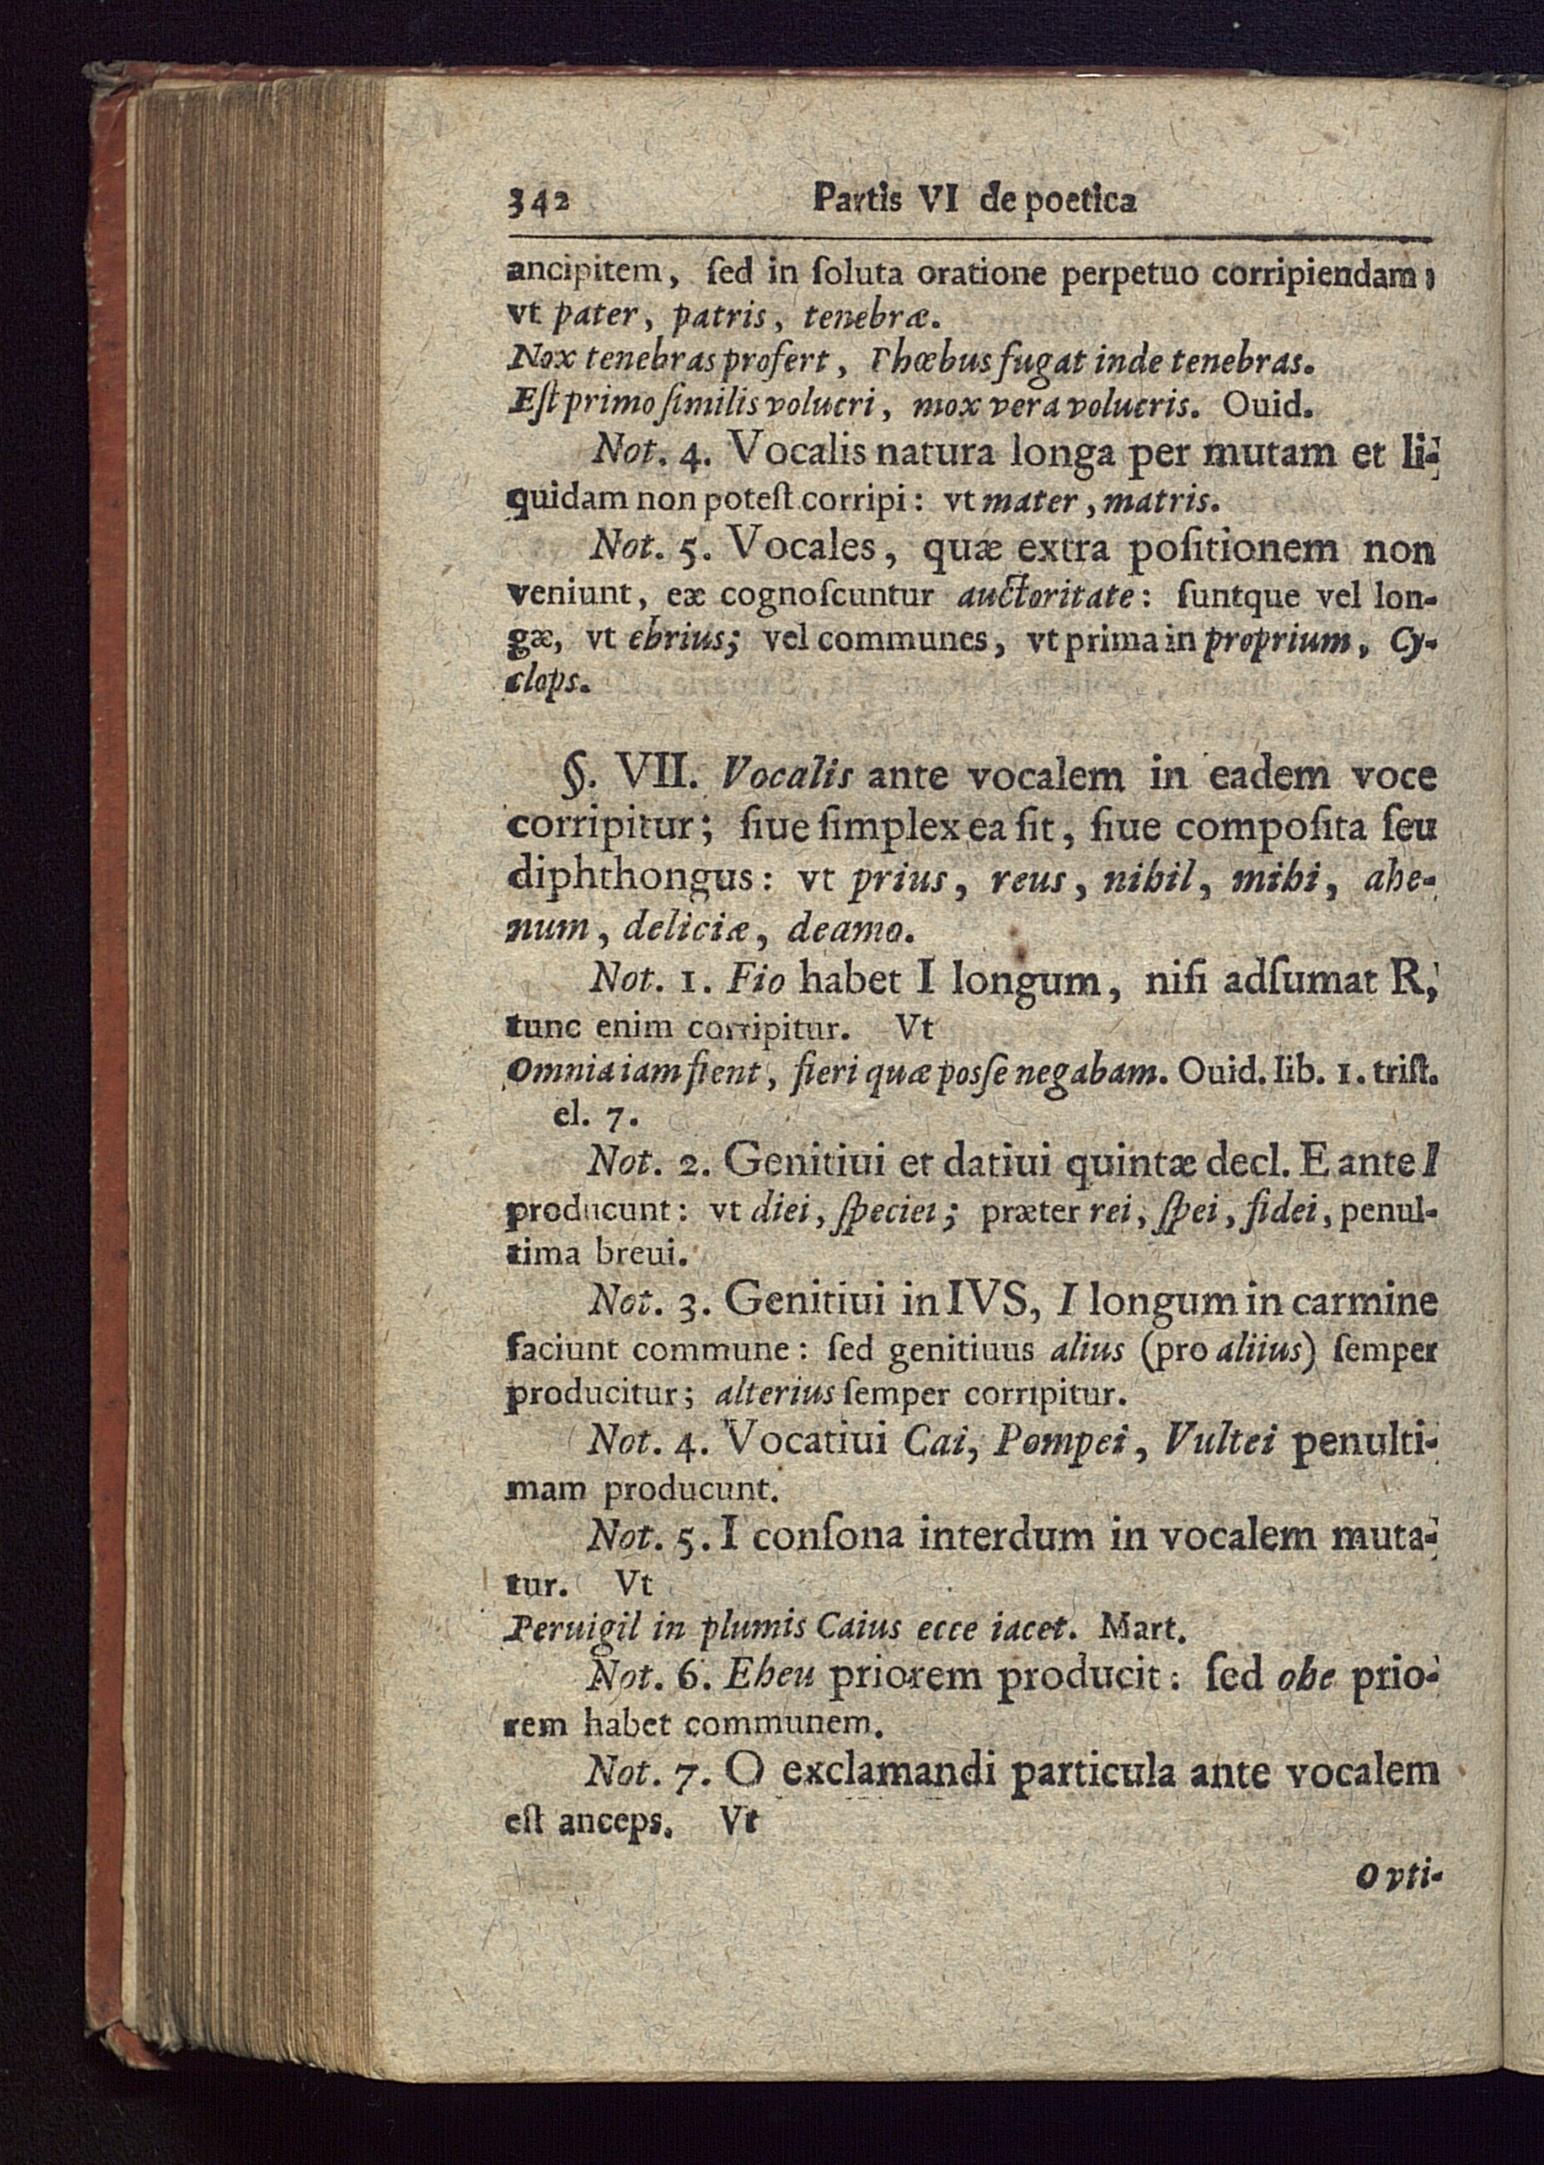 342 Partis VI de poetica
ancipitem, ſed in ſoluta oratione perpetuo corripiendam;
vt pater, patris, tenebræ.
Nox tenebras profert, Phœbus fugat inde tenebras.
Eſt primo ſimilis volucri, mox vera volucris. Ouid.
Not. 4. Vocalis natura longa per mutam et li-
quidam non poteſt corripi: vt mater, matris.
Not. 5. Vocales, quæ extra poſitionem non
veniunt, eæ cognoſcuntur auctoritate: ſuntque vel lon-
gæ, vt ebrius; vel communes, vt prima in proprium, Cy-
clops.
§. VII. Vocalis ante vocalem in eadem voce
corripitur; ſiue ſimplex ea ſit, ſiue compoſita ſeu
diphthongus: vt prius, reus, nihil, mihi, ahe-
num, deliciæ, deamo.
Not. 1. Fio habet I longum, niſi adſumat R,
tunc enim corripitur. Vt
Omnia iam fient, fieri quæ posſe negabam. Ouid. lib. 1. triſt.
el. 7.
Not. 2. Genitiui et datiui quintæ decl. E ante I
producunt: vt diei, ſpeciei; præter rei, ſpei, fidei, penul-
tima breui.
Not. 3. Genitiui in IVS, I longum in carmine
faciunt commune: ſed genitiuus alius (pro aliius) ſemper
producitur; alterius ſemper corripitur.
Not. 4. Vocatiui Cai, Pompei, Vultei penulti-
mam producunt.
Not. 5. I conſona interdum in vocalem muta-
tur. Vt
Peruigil in plumis Caius ecce iacet. Mart.
Not. 6. Eheu priorem producit: ſed ohe prio-
rem habet communem.
Not. 7. O exclamandi particula ante vocalem
eſt anceps. Vt
O vti-